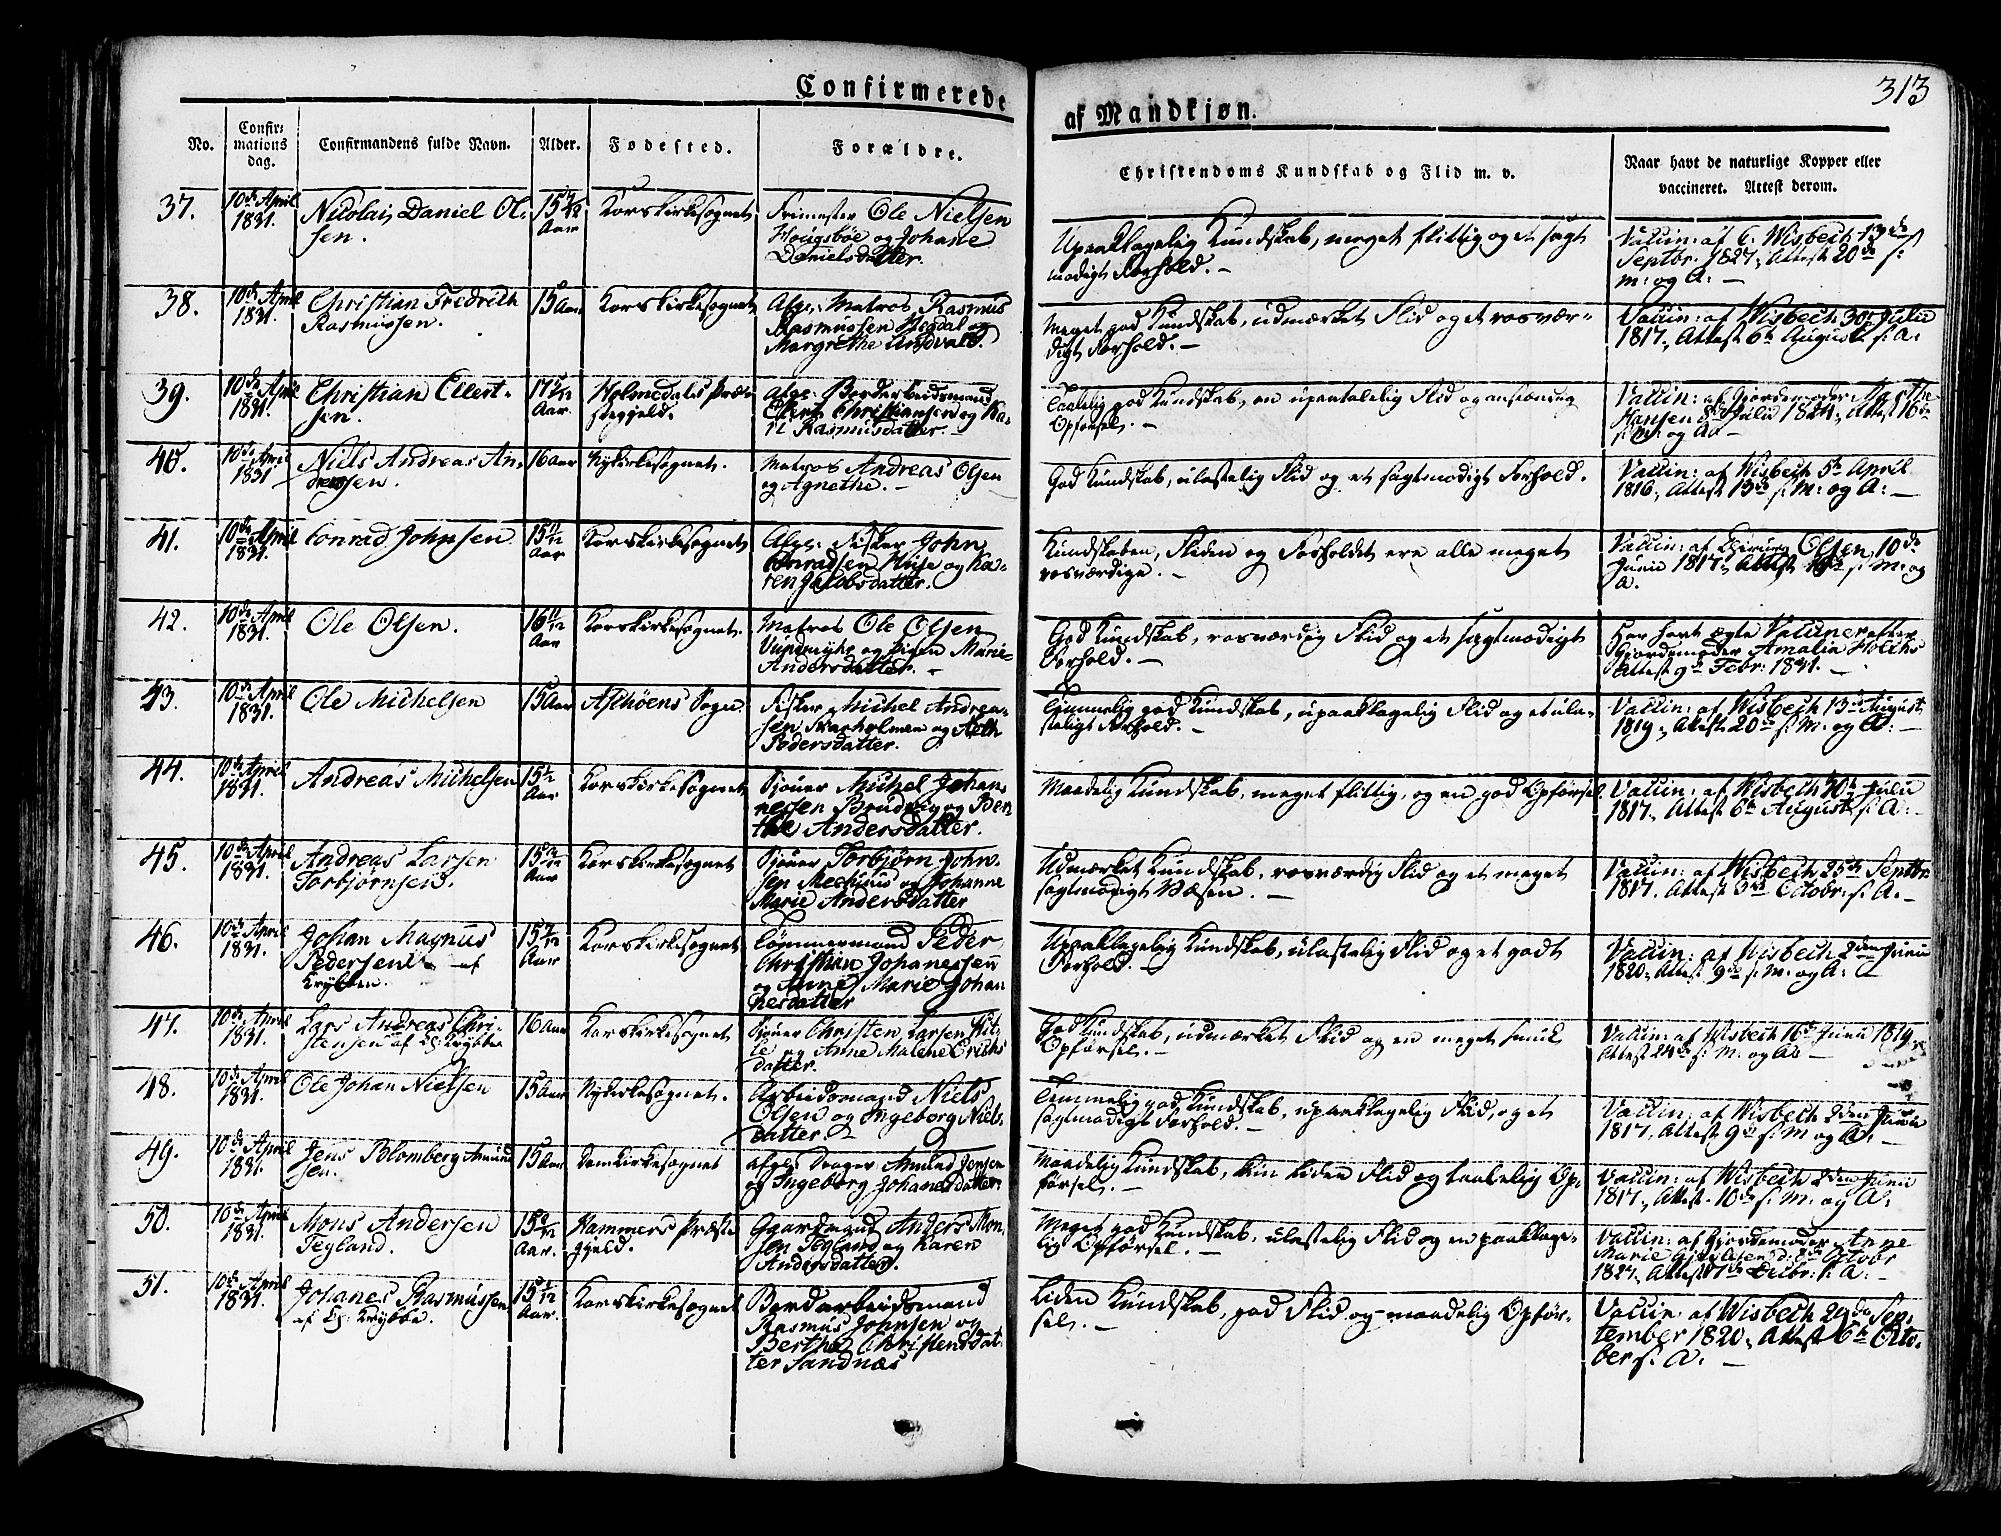 Confirmerede
af Mandkjøn.
313
No.
Confir-
mations
dag.
Confirmandens fulde Navn.
Alder.
Fødested.
Forældre.
Christendoms Kundskab og Flid m. v.
Naar havt de naturlige Kopper eller
vaccineret. Attest derom.
37.
10de April
1831.
Nicolai Daniel Ol-
sen.
Aar
Korskirkesognet
Ole Nielsen
Hougsbøe og Johane
Danielsdatter.
Upaaklagelig Kundskab, meget flittig og et sagt
modigt Forhold. —
Vaccin: af C. Wisbech 13de
Septbr. 1827, Attest 20de s:
m: og A: —
38.
10de April
1831.
Christian Fredrich
Rasmussen.
15 Aar
Korskirkesognet
Afg: Matros Rasmus
Rasmussen og
Margrethe
Meget god Kundskab, udmærket Flid og et rosvær-
digt Forhold. —
Vaccin: af Wisbech 30te Julii
1817, Attest 6te August s: A:
39.
10de April
1831.
Christian Ellert-
sen.
Aar.
Holmedals Præ-
stegjeld.
Ellert Christiansen og Ka-
ri Rasmusdatter. —
god Kundskab, en upaatalelig Flid og anstændig
Opførsel. —
Vaccin: af Gjordemoder
Hansen 8de Julii 1824, Attest 16de
s: M: og A: —
40.
10de April
1831
Niels Andreas An-
dersen.
16 Aar
Nykirkesognet.
Matros Andreas Olsen
og Agnethe. —
God Kundskab, ulastelig Flid og et sagtmodigt Forhold.
Vaccin: af Wisbech 5te April
1816, Attest 13de s: M: og A: —
41.
10de April
1831.
Conrad Johnsen
Aar
Korskirkesognet
Afg: Fisker John
Conradsen og Ka-
ren Jacobsdatter.
Kundskaben, Fliden og Forholdet ere alle meget
rosværdige. —
Vaccin: af Chirurg Olsen 10de
Junii 1817, Attest s: M: og
A.
42.
10de April
1831.
Ole Olsen.
Aar
Korskirkesognet.
Matros Ole Olsen
og Pigen Marie
Andersdatter. —
God Kundskab, rosværdig Flid og et sagtmodigt
Forhold. —
Har havt ægte Vaccine efter
Gjordemoder Amalia Holchs
Attest 9de Febr: 1831. —
43.
10de April
1831.
Ole Michelsen
15 Aar
Askøens Sogn.
Fisker Michel Andrea-
sen og
Pedersdatter.
Temmelig god Kundskab, upaaklagelig Flid og et ula-
steligt Forhold. —
Vaccin: af Wisbech 13de August
1819, Attest 20de s: M: og A: —
44.
10de April
1831.
Andreas Michelsen
Aar
Korskirkesognet
Michel Johan-
nessen og Ben-
the Andersdatter.
Maadelig Kundskab, meget flittig, og en god Opførsel.
Vaccin: af Wisbech 30te Julii
1817, Attest 6te August s: A: —
45.
10de April
1831.
Andreas Larsen
Torbjørnsen.
Aar
Korskirkesognet
Torbjørn John-
sen og Johanne
Marie Andersdatter
Udmærket Kundskab, rosværdig Flid og et meget
sagtmodigt Væsen. —
Vaccin: af Wisbech 25de Septbr
1817, Attest 3die Octobr: s: A: —
46.
10de April
1831.
Johan Magnus
Pedersen — af
Krybben.
Aar
Korskirkesognet
Tømmermand Peder
Christian Johanessen
og Anne Marie Johan
nesdatter
Upaaklagelig Kundskab, ulastelig Flid og et godt
Forhold. —
Vaccin: af Wisbech 2den Junii
1820, Attest 9de s: M: og A: —
47.
10de April
1831.
Lars Andreas Chri-
stensen af Krybben
16 Aar
Korskirkesognet
Christen Larsen
og Anne Malene Erichs
datter.
God Kundskab, udmærket Flid og en meget smuk
Opførsel. —
Vaccin: af Wisbech 16de Junii 1819,
Attest 24de s: M: og A: —
48.
10de April
1831.
Ole Johan Nielsen
15 Aar
Nykirkesognet.
Arbeidsmand Niels
Olsen og Ingeborg Niels-
datter. —
Temmelig god Kundskab, upaaklagelig Flid, og et
sagtmodigt Forhold. —
Vaccin: af Wisbech 2den Junii
1817, Attest 9de s: M og A: —
49.
10de April
1831.
Jens Blomberg Amund
sen.
15 Aar
Domkirkesognet
Afg: Drager Amund Jensen
og Ingeborg Johanesdatter.
Maadelig Kundskab, kun liden Flid og taalelig Op-
førsel. —
Vaccin: af Wisbech 2den Junii
1817, Attest 10de s: M: og A:
50.
10de April
1831.
Mons Andersen
Tegland.
Aar.
Hammers Præste
gjeld.
Gaardmand Anders Mon-
sen Tegland og Karen
Andersdatter.
Meget god Kundskab, ulastelig Flid og en paaklage-
lig Opførsel. —
Vaccin: af Gjordemoder Anne
Marie d: 8de Octobr
1827, Attest Decbr: s: A: —
51.
10de April
1831.
Johanes Rasmussen
af Krybbe.
Aar.
Korskirkesognet
Bordarbeidsmand
Rasmus Johnsen og
Berthe Christensdat-
ter Sandnæs
Liden Kundskab, god Flid og maadelig Opfør-
sel. —
Vaccin: af Wisbech 29de Sep-
tember 1820, Attest 6te Octo-
ber s: A. —